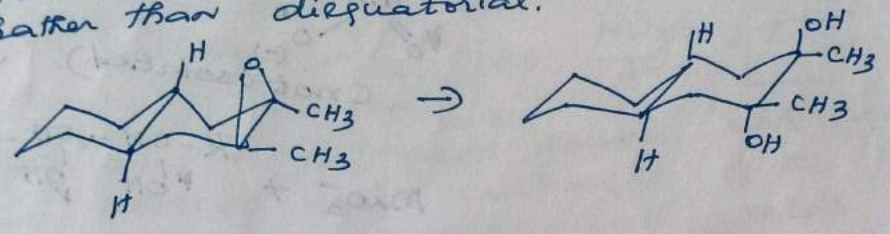 rather than diequatorial.
H O CH3 CH3 H
→
H OH CH3 CH3 OH H